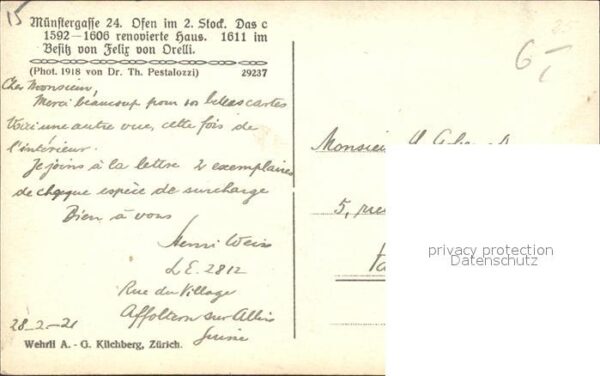 15
Münstergasse 24. Ofen im 2. Stock. Das c
1592—1606 renovierte Haus. 1611 im
Besitz von Felix von Orelli.
(Phot. 1918 von Dr. Th. Pestalozzi) 29237
Cher Monsieur,
Merci beaucoup pour vos belles cartes
voici une autre vue, cette fois de
l'intérieur.
Je joins à la lettre 2 exemplaires
de chaque espèce de surcharge
Bien à vous
Henri Weis
L.E. 2812
Rue du Village
Affoltern sur Albis
Suisse
28-2-21
Wehrli A.-G. Kilchberg, Zürich.
6
Monsieur
5, rue
privacy protection
Datenschutz